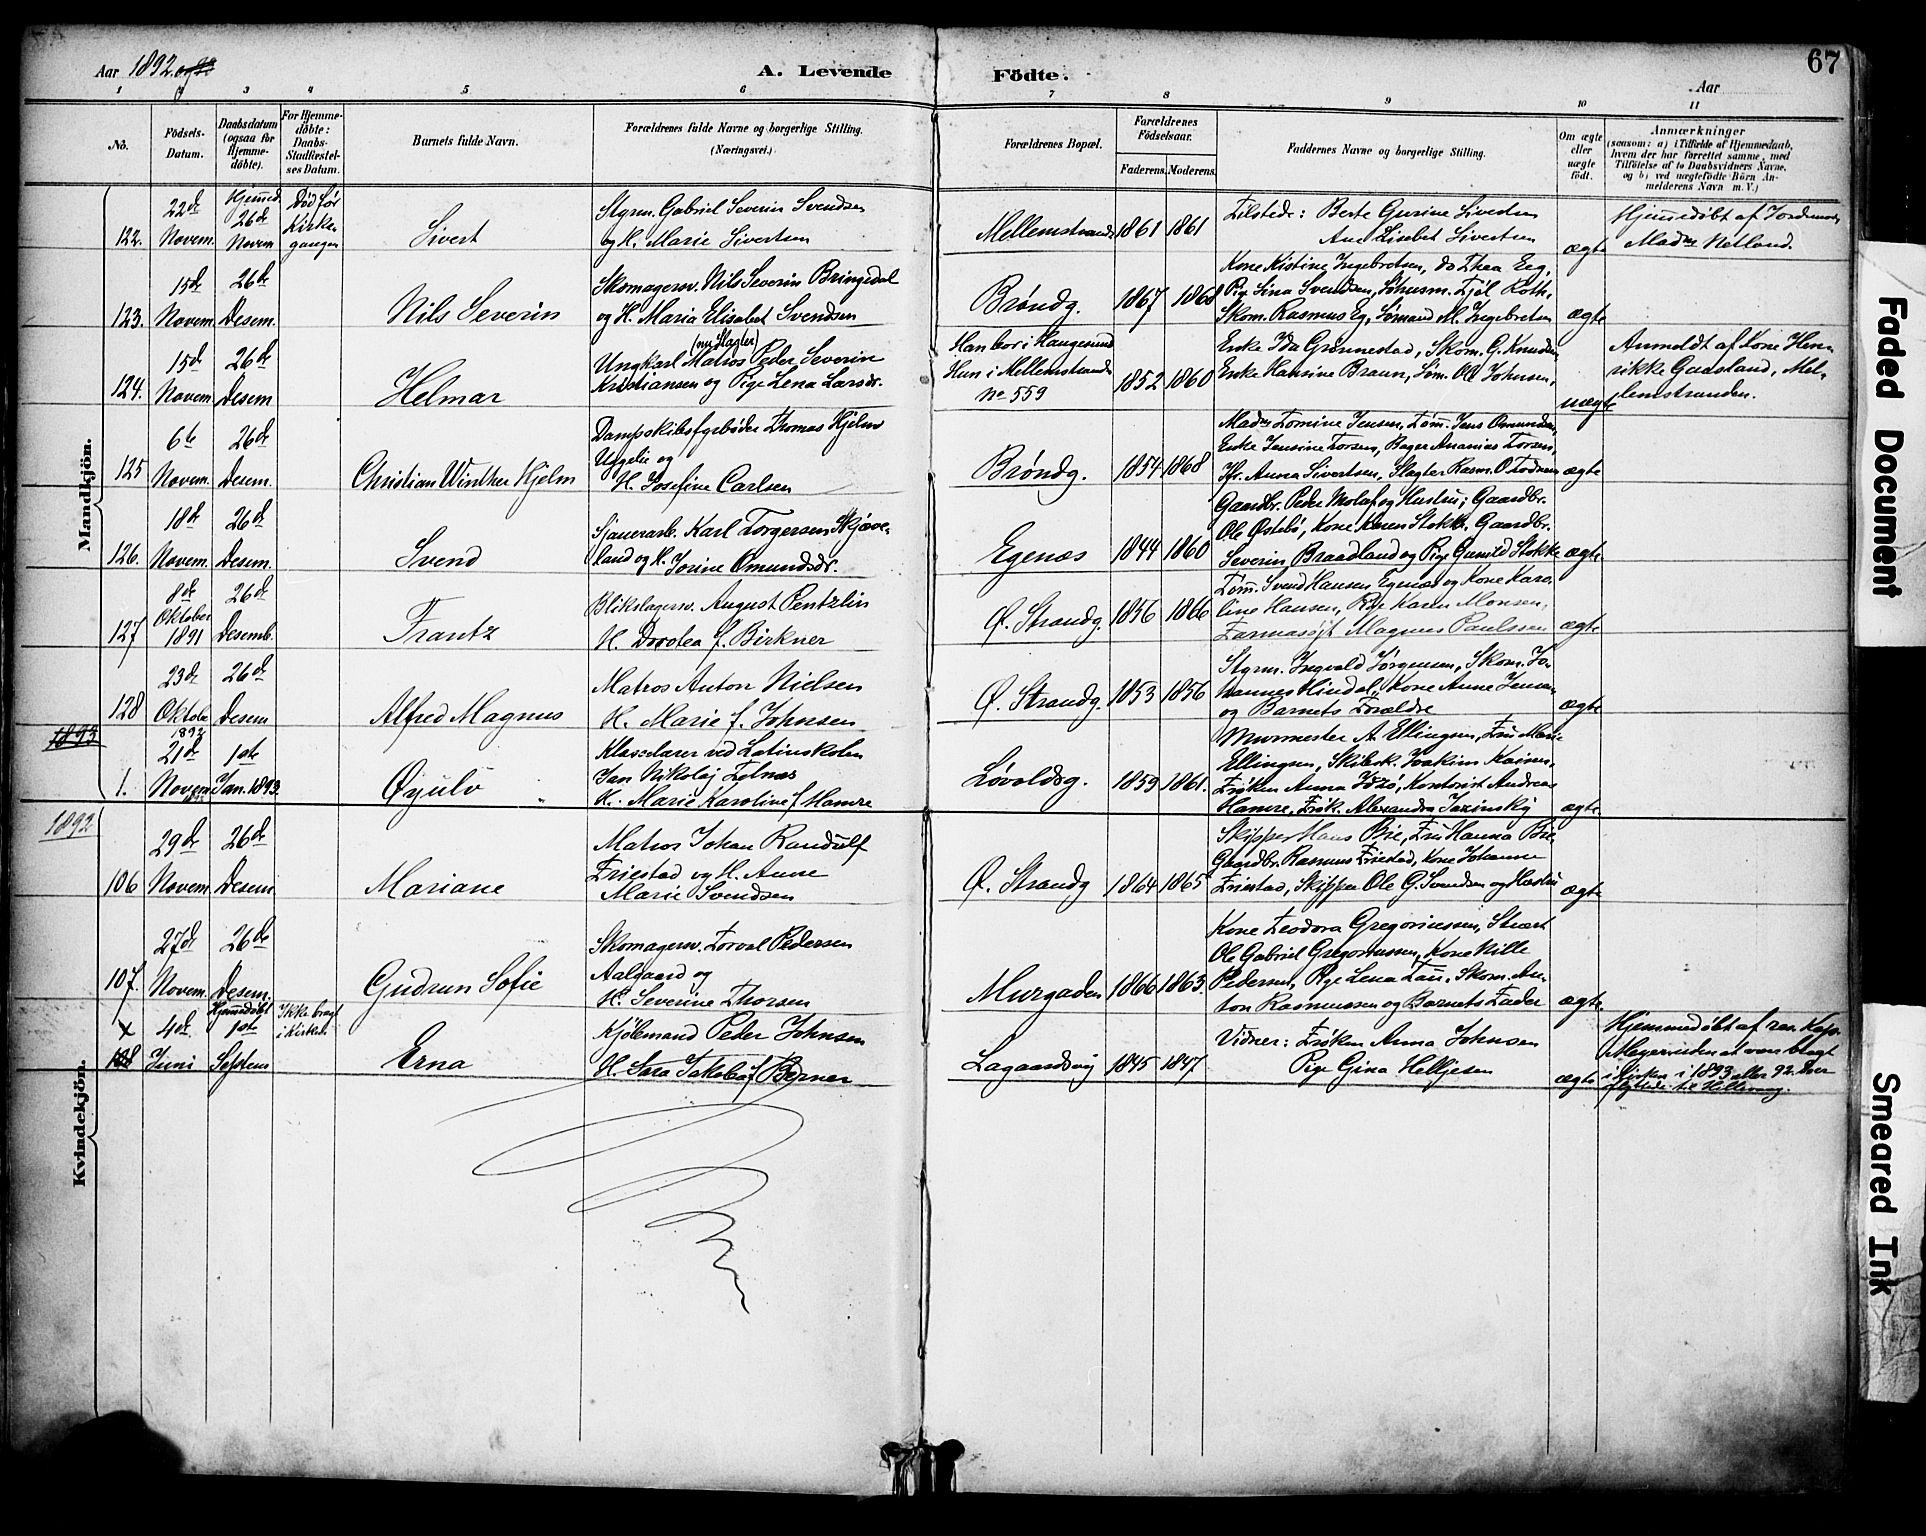 Aar 1892
A. Levende Födte.
Aar
67
1 2 3 4 5 6 7 8 9 10 11
No.
Födsels-Datum.
Daabsdatum (ogsaa for Hjemme-döbte).
For Hjemme-döbte: Daabs-Stadfæstel-ses Datum.
Barnets fulde Navn.
Forældrenes fulde Navne og borgerlige Stilling. (Næringsvei.)
Forældrenes Bopæl.
Forældrenes Födselsaar.
Faderens. Moderens.
Faddernes Navne og borgerlige Stilling.
Om ægte eller uægte födt.
Anmærkninger
(saasom: a) i Tilfælde af Hjemmedaab,
hvem der har forrettet samme, med
Tilföielse af to Daabsvidners Navne,
og b) ved uægtefödte Börn An-
melderens Navn m. V.)
Mandkjön.
122. 22de Novem. Hjemmed. 26de Novem Död før Kirke-gangen
Sivert
Styrm. Gabriel Severin Svendsen
og H. Marie Sivertsen
Mellemstrand 1861 1861
Tilstede: Berte Gurine
Ane Lisebet Sivertsen
ægte
Hjemmedøbt af Jordemor
Mad. Netland.
123. 15de Novem. 26de Desem.
Nils Severin
Skomagersv. Nils Severin Bringedal
og H. Maria Elisabet Svendsen
Brøndg. 1867 1868
Kone Kistine Ingebretsen, do Thea Eeg,
Pige Sina Svendsen, Tjel Roth,
Skom. Rasmus Eg, Sømand M. Ingebretsen
ægte
124. 15de Novem 26de Desem
Helmar
(nu Slagter)
Ungkarl Matros Peder Severin
Kristiansen og Pige Lena Larsdr.
Han bor i Haugesund
Hun i Mellemstrand
No 559
1852 1860
Enke Ida Grønnestad, Skom. G. Knudsen
Enke Hansine Braun, Søm. Ole Johnsen,
uægte
Anmeldt af Kone Hen-
rikke Gausland, Mel-
lemstranden.
125 6te Novem. 26de Desem.
Christian Winther Hjelm
Dampskibsfyrbøder Thomas Hjelm
Uggelie og
H. Josefine Carlsen
Brøndg. 1854 1868
Mad. Tomine Jensen, Tøm. Jens Omundsen,
Enke Jensine Torsen, Bager Ananias Torsen,
Fr. Anna Sivertsen, Slagter Rasm. O. Todnem
ægte
126. 18de Novem. 26de Desem.
Svend
Sjauerarb. Karl Torgersen Skjæve-
land og H. Jorine Omundsdr.
Egenæs 1844 1860
Gaardbr. Peder Molaf og Hustru; Gaardbr.
Ole Østebø, Kone Karen Stokke, Gaardbr.
Severin Braadland og Pige Gunild Stokke
ægte
127 8de Oktober 1891 26de Desemb.
Frantz
Blikslagersv. August Pentzlin
H. Dorotea f. Birkner
Ø. Strandg. 1856 1866
Tøm. Svend Hansen, Egenæs og Kone Karo-
line Hansen, Pige Karen Monsen,
Farmasøjt Magnus Paulssen
ægte
128 23de Oktobr 1892 26de Desem
Alfred Magnus
Matros Anton Nielsen
H. Marie f. Johnsen
Ø. Strandg. 1853 1856
Styrm. Ingvald Jørgensen, Skom. Jo-
hannes Hindal, Kone Anne Jensen
og Barnets Forældre
ægte
1893
1. 21de Novem. 1ste Jan. 1893
Øyulv
Klasselærer ved Latinskolen
Jan Nikolaj Zelnæs
H. Marie Karoline f. Hamre
Løvoldsg. 1859 1861.
Murmester A. Ellingsen, Fru Marie
Ellingsen, Skibsk. Joakim
Frøken Anna Kontorist Andreas
Hamre, Frøk. Alexandra
ægte
1892
Kvindekjön.
106 29de Novem. 26de Desem.
Mariane
Matros Johan Randulf
Friestad og H. Anne
Marie Svendsen
Ø. Strandg 1864 1865
Skipper Hans Brie, Fru Hanna Brie
Gaardbr. Rasmus Friestad, Kone Johanne
Friestad, Skipper Ole G. Svendsen og Hustru
ægte
107. 27de Novem. 26de Desem.
Gudrun Sofie
Skomagersv. Torval Pedersen
Aalgaard og
H. Severine Thorsen
Murgaden 1866 1863.
Kone Teodora Gregoriussen, Stuert
Ole Gabriel Gregoriussen, Kone Nille
Pedersen, Pige Lena Tau, Skom. An-
ton Rasmussen og Barnets Fader
ægte.
x 108 4de Juni Hjemmedøbt 1ste Septem Ikke bragt i Kirken
Erna
Kjøbmand Peder Johnsen
H. Sara Jakoba f. Berner
Lagaardsvej 1845 1847
Vidner: Frøken Anna Johnsen
Pige Gina Helljesen
ægte
Hjemmedøbt af res. Kap.
Meyer uden at være bragt
i Kirken i 1893 eller 92.
Faded Document
Smeared Ink